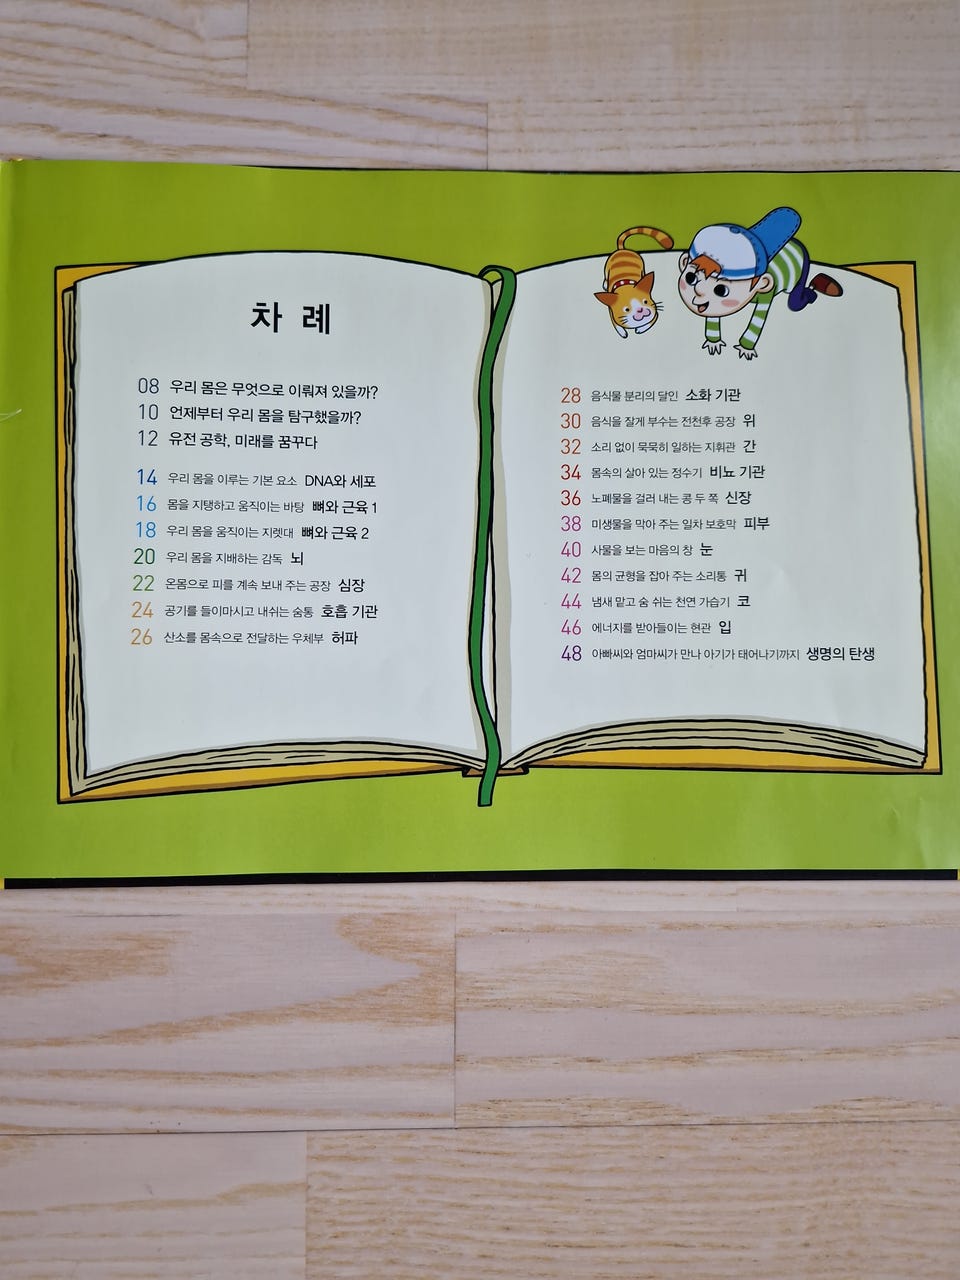 차 례
08 우리 몸은 무엇으로 이뤄져 있을까?
10 언제부터 우리 몸을 탐구했을까?
12 유전 공학, 미래를 꿈꾸다
14 우리 몸을 이루는 기본 요소 DNA와 세포
16 몸을 지탱하고 움직이는 바탕 뼈와 근육 1
18 우리 몸을 움직이는 지렛대 뼈와 근육 2
20 우리 몸을 지배하는 감독 뇌
22 온몸으로 피를 계속 보내 주는 공장 심장
24 공기를 들이마시고 내쉬는 숨통 호흡 기관
26 산소를 몸속으로 전달하는 우체부 허파
28 음식물 분리의 달인 소화 기관
30 음식을 잘게 부수는 전천후 공장 위
32 소리 없이 묵묵히 일하는 지휘관 간
34 몸속의 살아 있는 정수기 비뇨 기관
36 노폐물을 걸러 내는 콩 두 쪽 신장
38 미생물을 막아 주는 일차 보호막 피부
40 사물을 보는 마음의 창 눈
42 몸의 균형을 잡아 주는 소리통 귀
44 냄새 맡고 숨 쉬는 천연 가습기 코
46 에너지를 받아들이는 현관 입
48 아빠씨와 엄마씨가 만나 아기가 태어나기까지 생명의 탄생